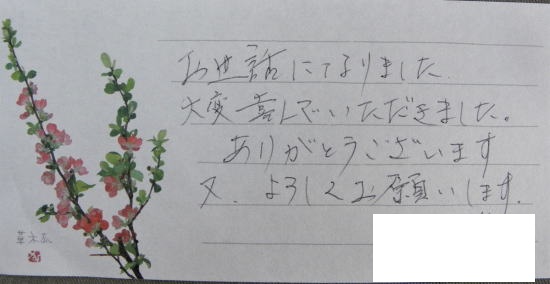 お世話になりました.
大変喜んでいただきました。
ありがとうございます
又、よろしくお願いします.